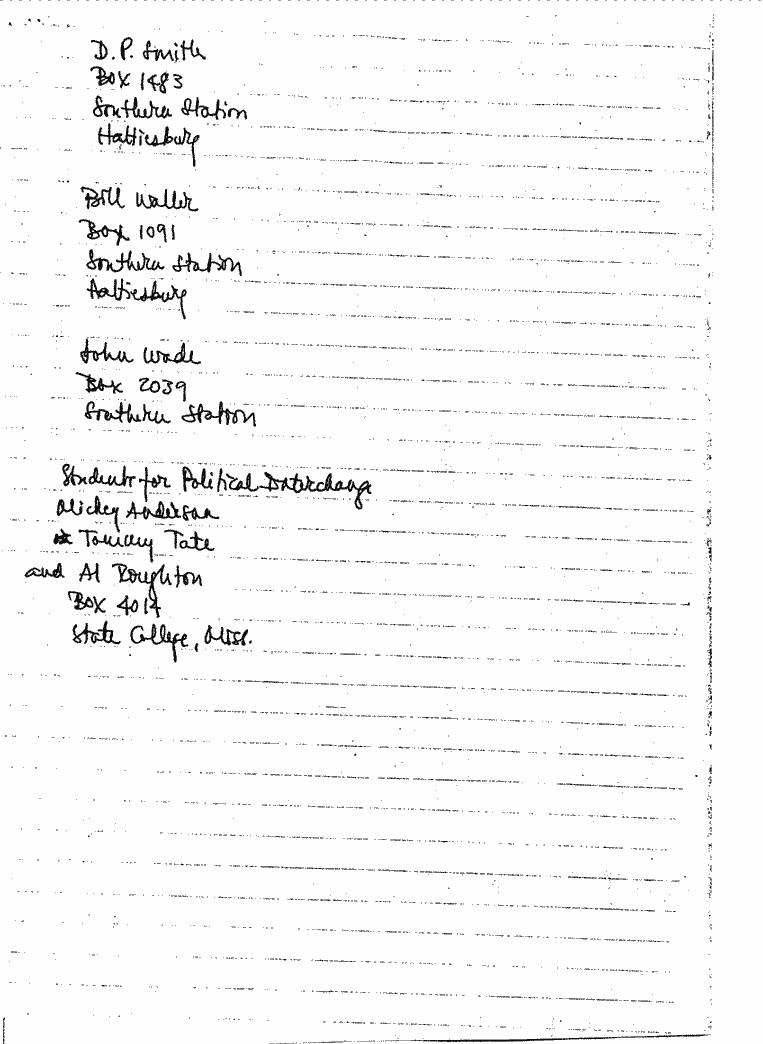 D.P. Smith
Box 1483
Southern Station
Hattiesburg
Bill Waller
Box 1091
Southern Station
Hattiesburg
John Wade
Box 2039
Southern Station
Students for Political Interchange
Mickey Anderson
Tommy Tate
and Al Roughton
Box 4014
State College, Miss.